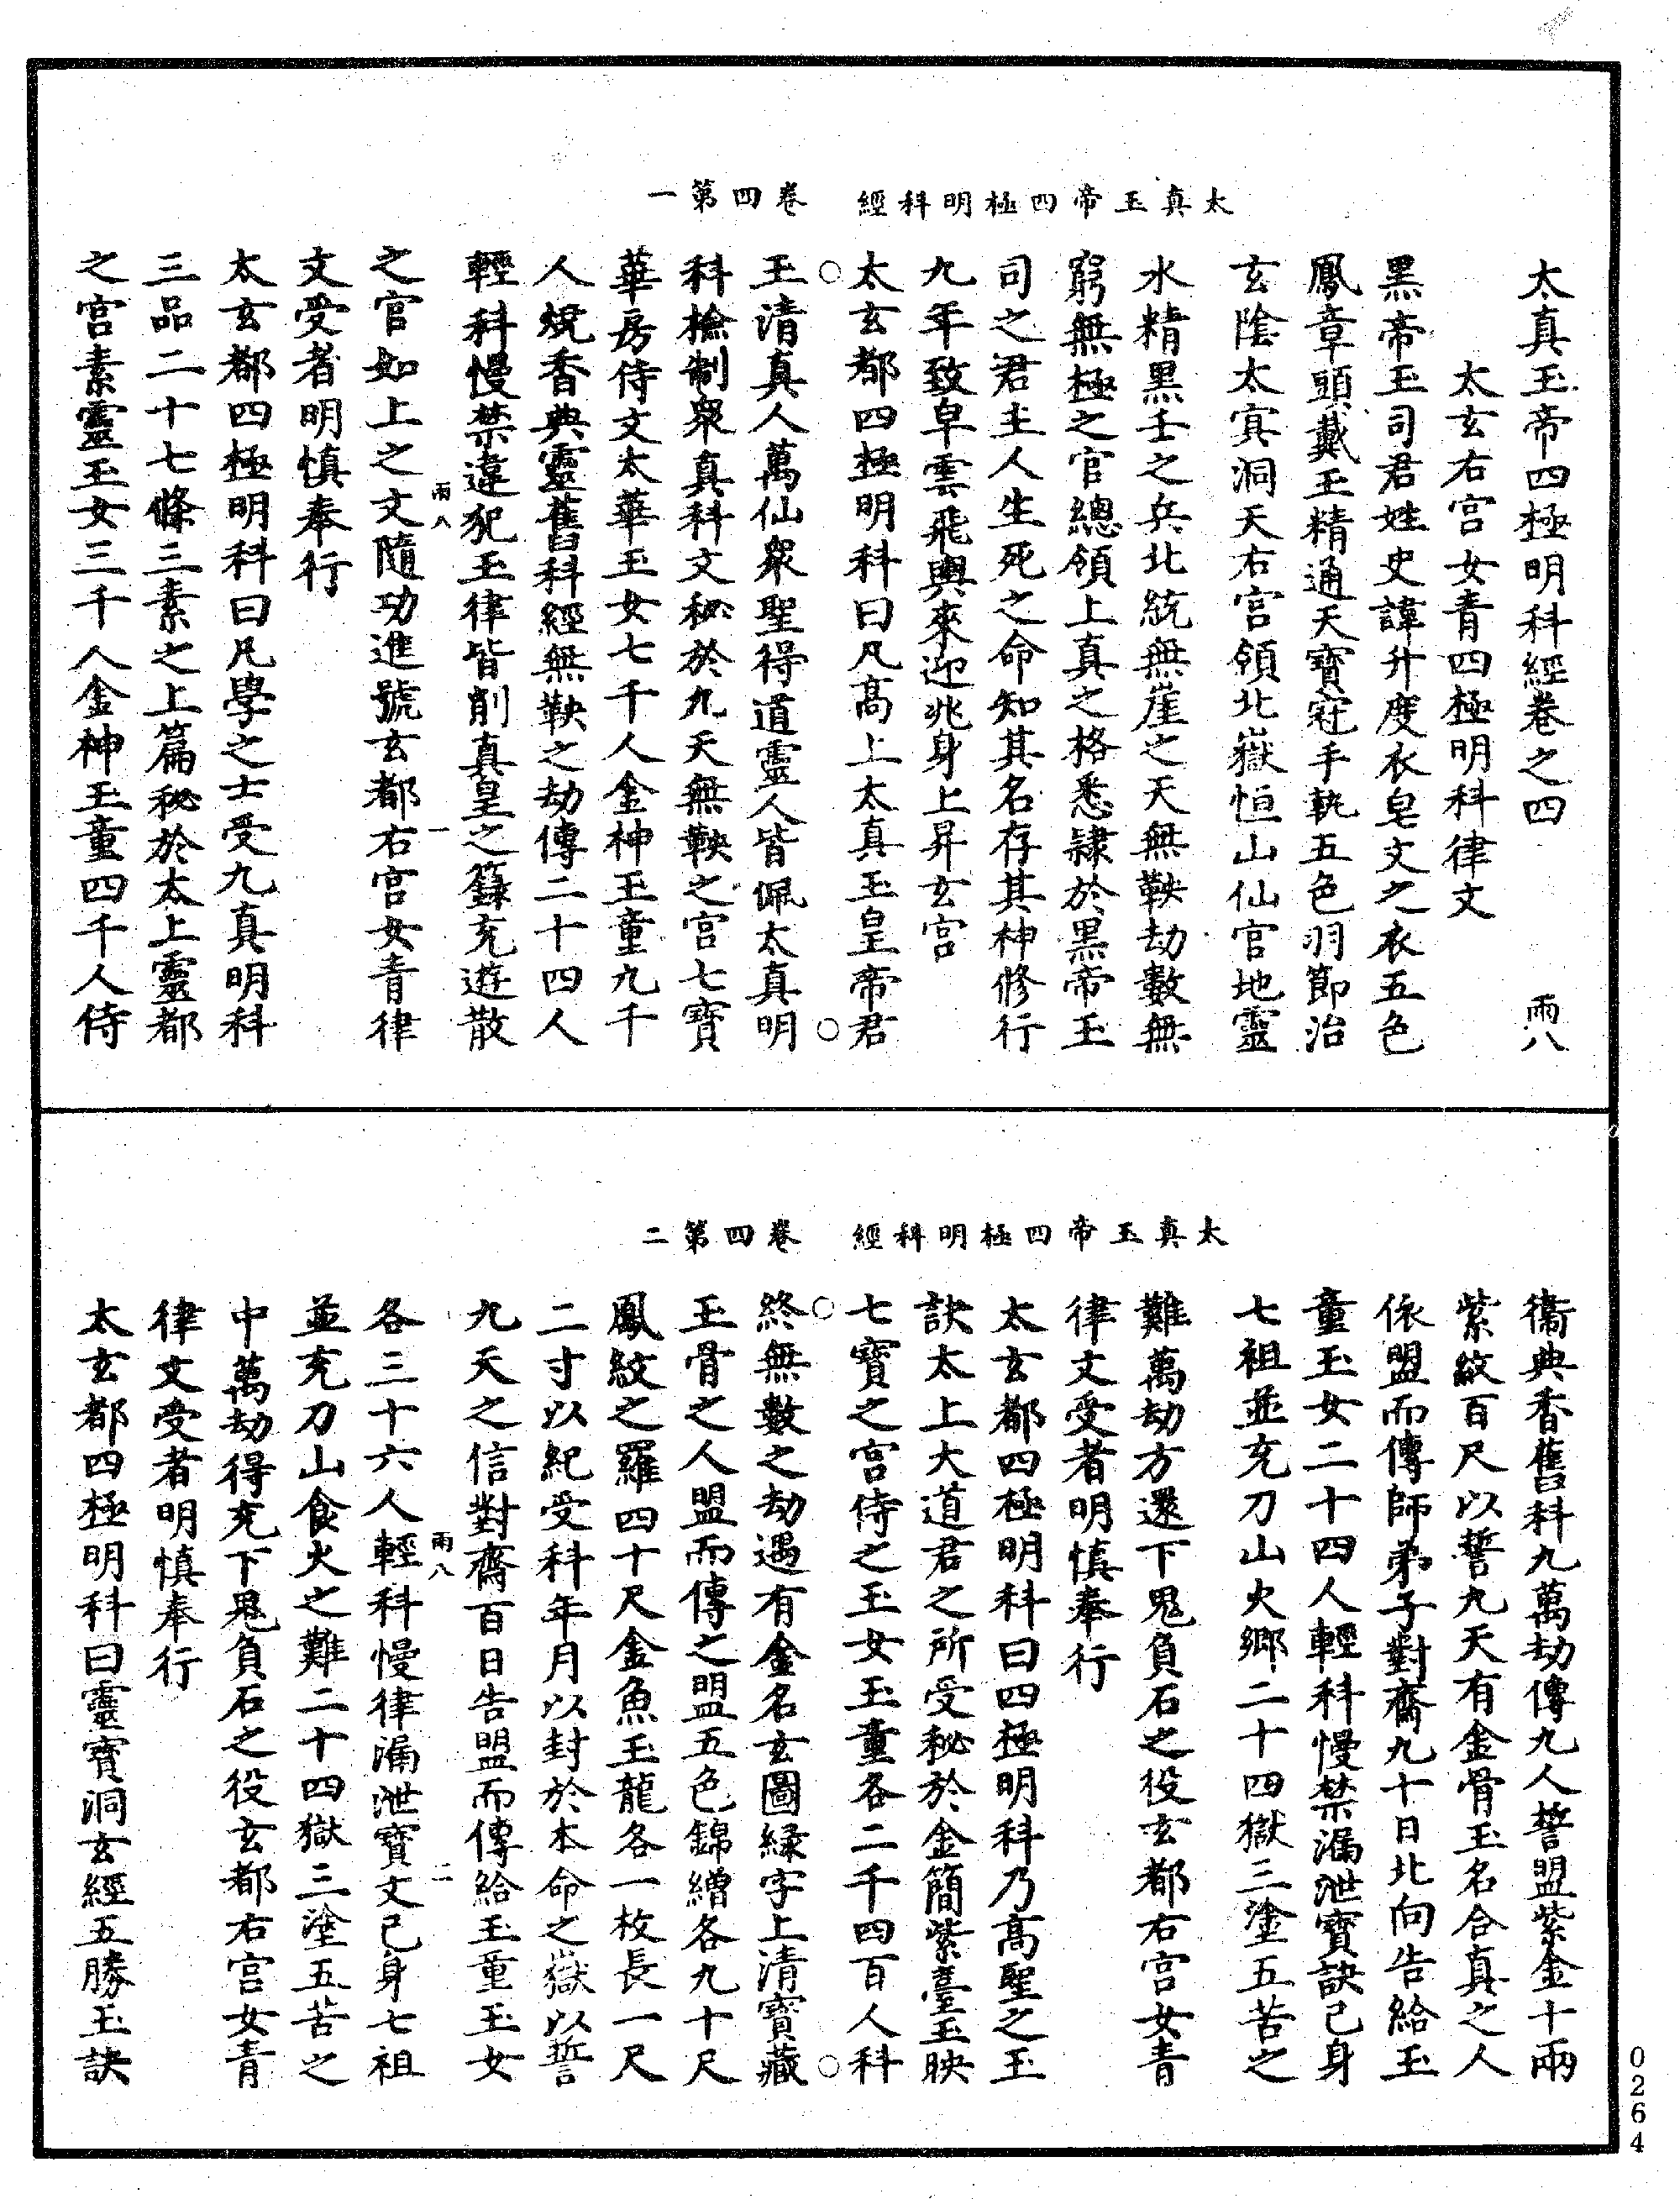 太真玉帝四極明科經　卷四第一
太真玉帝四極明科經卷之四　雨八
太玄右宮女青四極明科律文
黑帝玉司君姓史諱升度衣皂文之衣五色
鳳章頭戴玉精通天寶冠手執五色羽節治
玄陰太寘洞天右宮領北嶽恒山仙官地靈
水精黑壬之兵北統無崖之天無鞅劫數無
窮無極之官總領上真之格悉隸於黑帝玉
司之君主人生死之命知其名存其神修行
九年致皁雲飛輿來迎兆身上昇玄宮
太玄都四極明科曰凡高上太真玉皇帝君
玉清真人萬仙衆聖得道靈人皆佩太真明
科檢制衆真科文秘於九天無鞅之宮七寶
華房侍文太華玉女七千人金神玉童九千
人燒香典靈舊科經無鞅之劫傳二十四人
輕科慢禁違犯玉律皆削真皇之籙充遊散
雨八　一
之官如上之文隨功進號玄都右宮女青律
文受者明慎奉行
太玄都四極明科曰凡學之士受九真明科
三品二十七條三素之上篇秘於太上靈都
之宮素靈玉女三千人金神玉童四千人侍
太真玉帝四極明科經　卷四第二
衞典香舊科九萬劫傳九人誓盟紫金十兩
紫紋百尺以誓九天有金骨玉名合真之人
依盟而傳師弟子對齋九十日北向告給玉
童玉女二十四人輕科慢禁漏泄寶訣己身
七祖並充刀山火鄉二十四獄三塗五苦之
難萬劫方還下鬼負石之役玄都右宮女青
律文受者明慎奉行
太玄都四極明科曰四極明科乃高聖之玉
訣太上大道君之所受秘於金簡紫臺玉映
七寶之宮侍之玉女玉童各二千四百人科
終無數之劫遇有金名玄圖緑字上清寶藏
玉骨之人盟而傳之盟五色錦繒各九十尺
鳳紋之羅四十尺金魚玉龍各一枚長一尺
二寸以紀受科年月以封於本命之嶽以誓
九天之信對齋百日告盟而傳給玉童玉女
雨八　二
各三十六人輕科慢律漏泄寶文己身七祖
並充刀山食火之難二十四獄三塗五苦之
中萬劫得充下鬼負石之役玄都右宮女青
律文受者明慎奉行
太玄都四極明科曰靈寶洞玄經五勝玉訣
0264